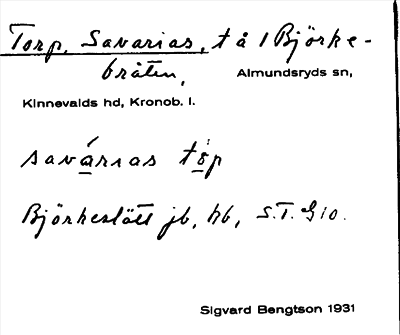 Torp, Savarias, t å 1 Björke-
bråten,
Almundsryds sn,
Kinnevalds hd, Kronob. l.
savárias
Björkeslätt jb, hb, S.T. G10.
Sigvard Bengtson 1931